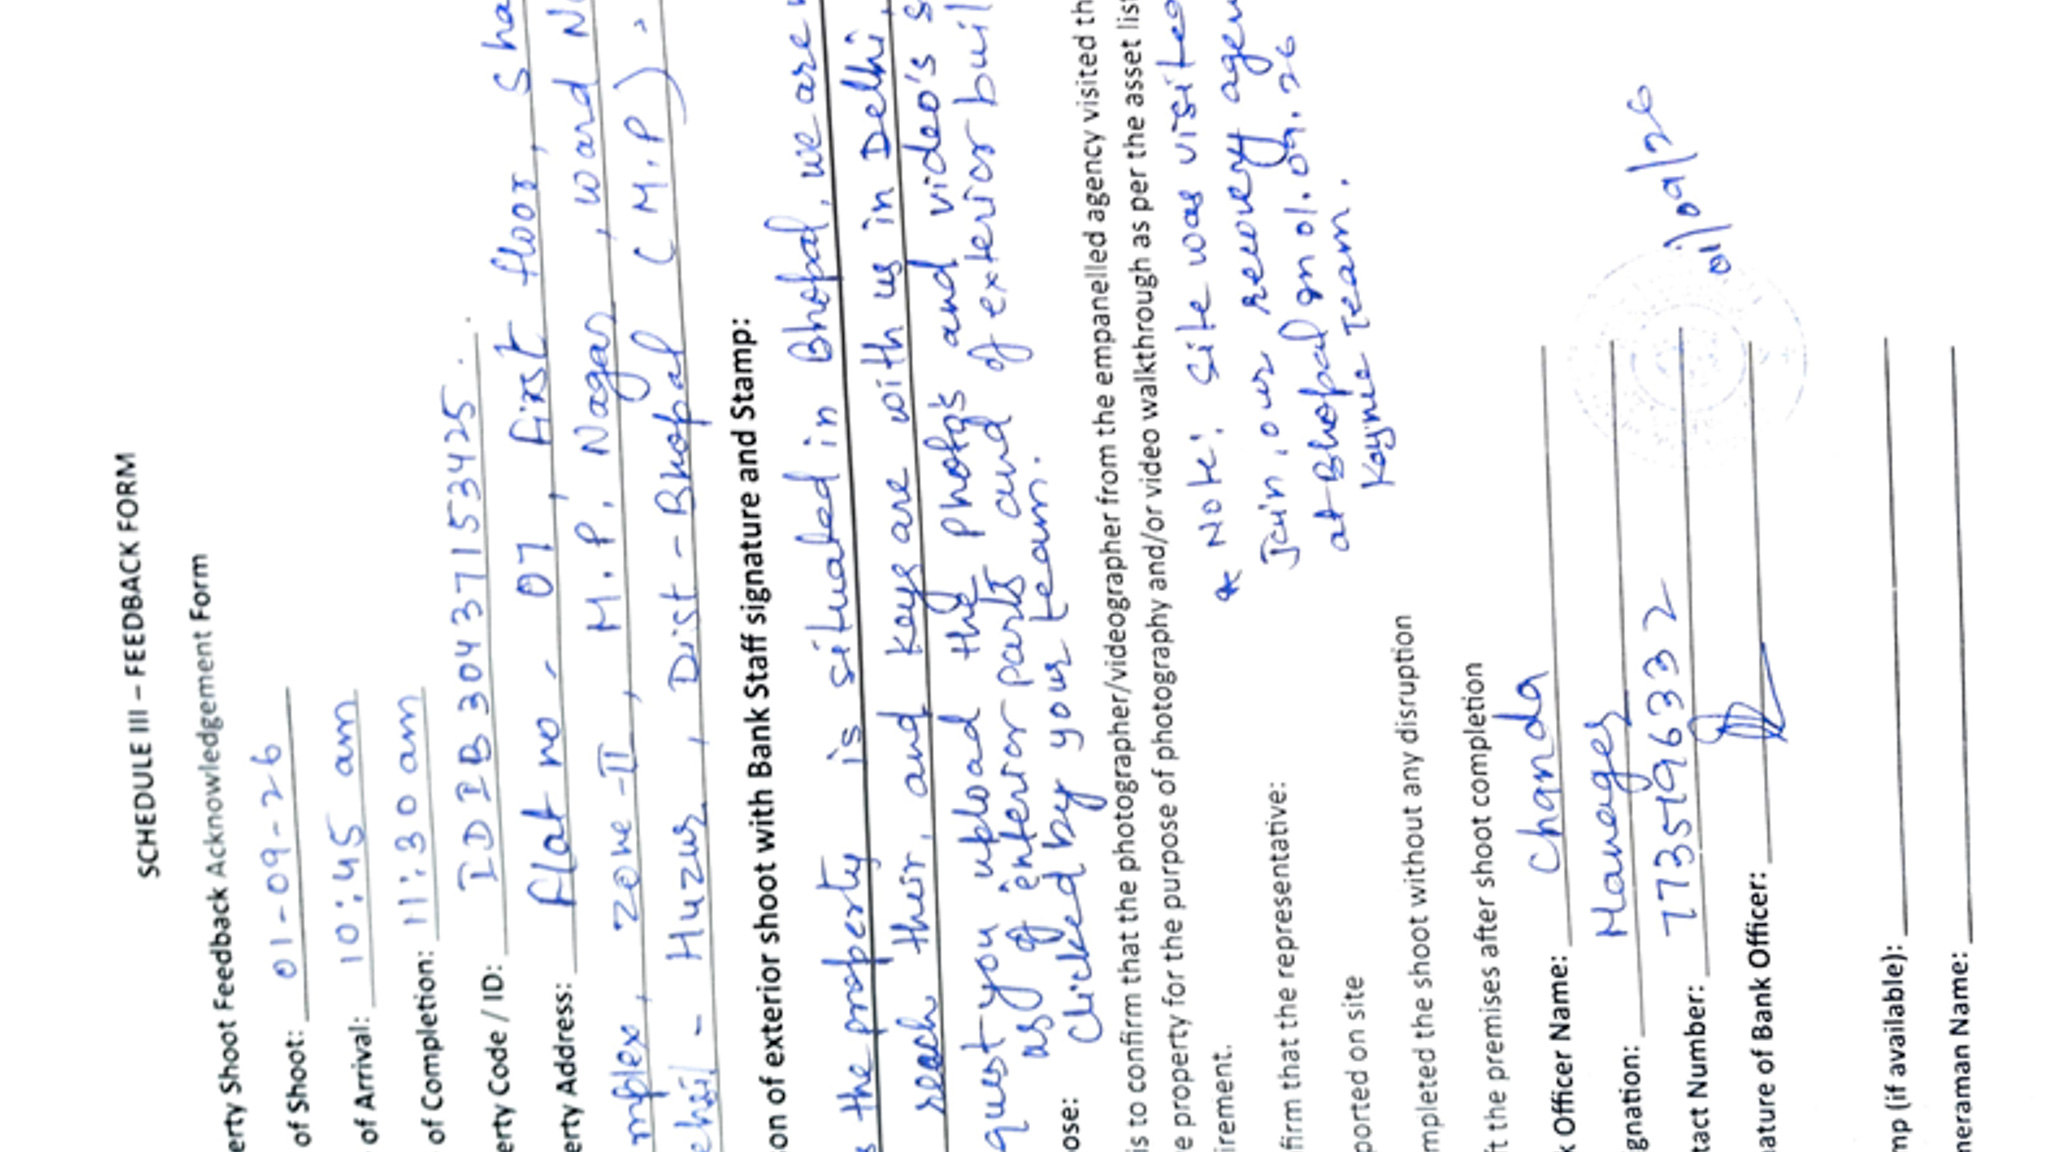 SCHEDULE III – FEEDBACK FORM
erty Shoot Feedback Acknowledgement Form
of Shoot: 01-09-26
of Arrival: 10:45 am
of Completion: 11:30 am
erty Code / ID: IDIB30437153425.
erty Address: flat no. 07, first floor, Sha
mplex, zone-II, M.P. Nagar, ward N
ehsil - Huzur, Dist - Bhopal (M.P)
on of exterior shoot with Bank Staff signature and Stamp:
s the property is situated in Bhopal, we are
reach their, and keys are with us in Delhi,
quest you upload the photo's and video's s
as of interior parts and of exterior buil
clicked by your team.
ose:
is to confirm that the photographer/videographer from the empanelled agency visited th
e property for the purpose of photography and/or video walkthrough as per the asset list
irement.
* Note: Site was visited
Jain, our recovery agen
at Bhopal on 01.09.26
Team.
firm that the representative:
ported on site
mpleted the shoot without any disruption
ft the premises after shoot completion
k Officer Name: Chanda
gnation: Manager
tact Number: 7735196332
nature of Bank Officer:
01/09/26
mp (if available):
meraman Name: